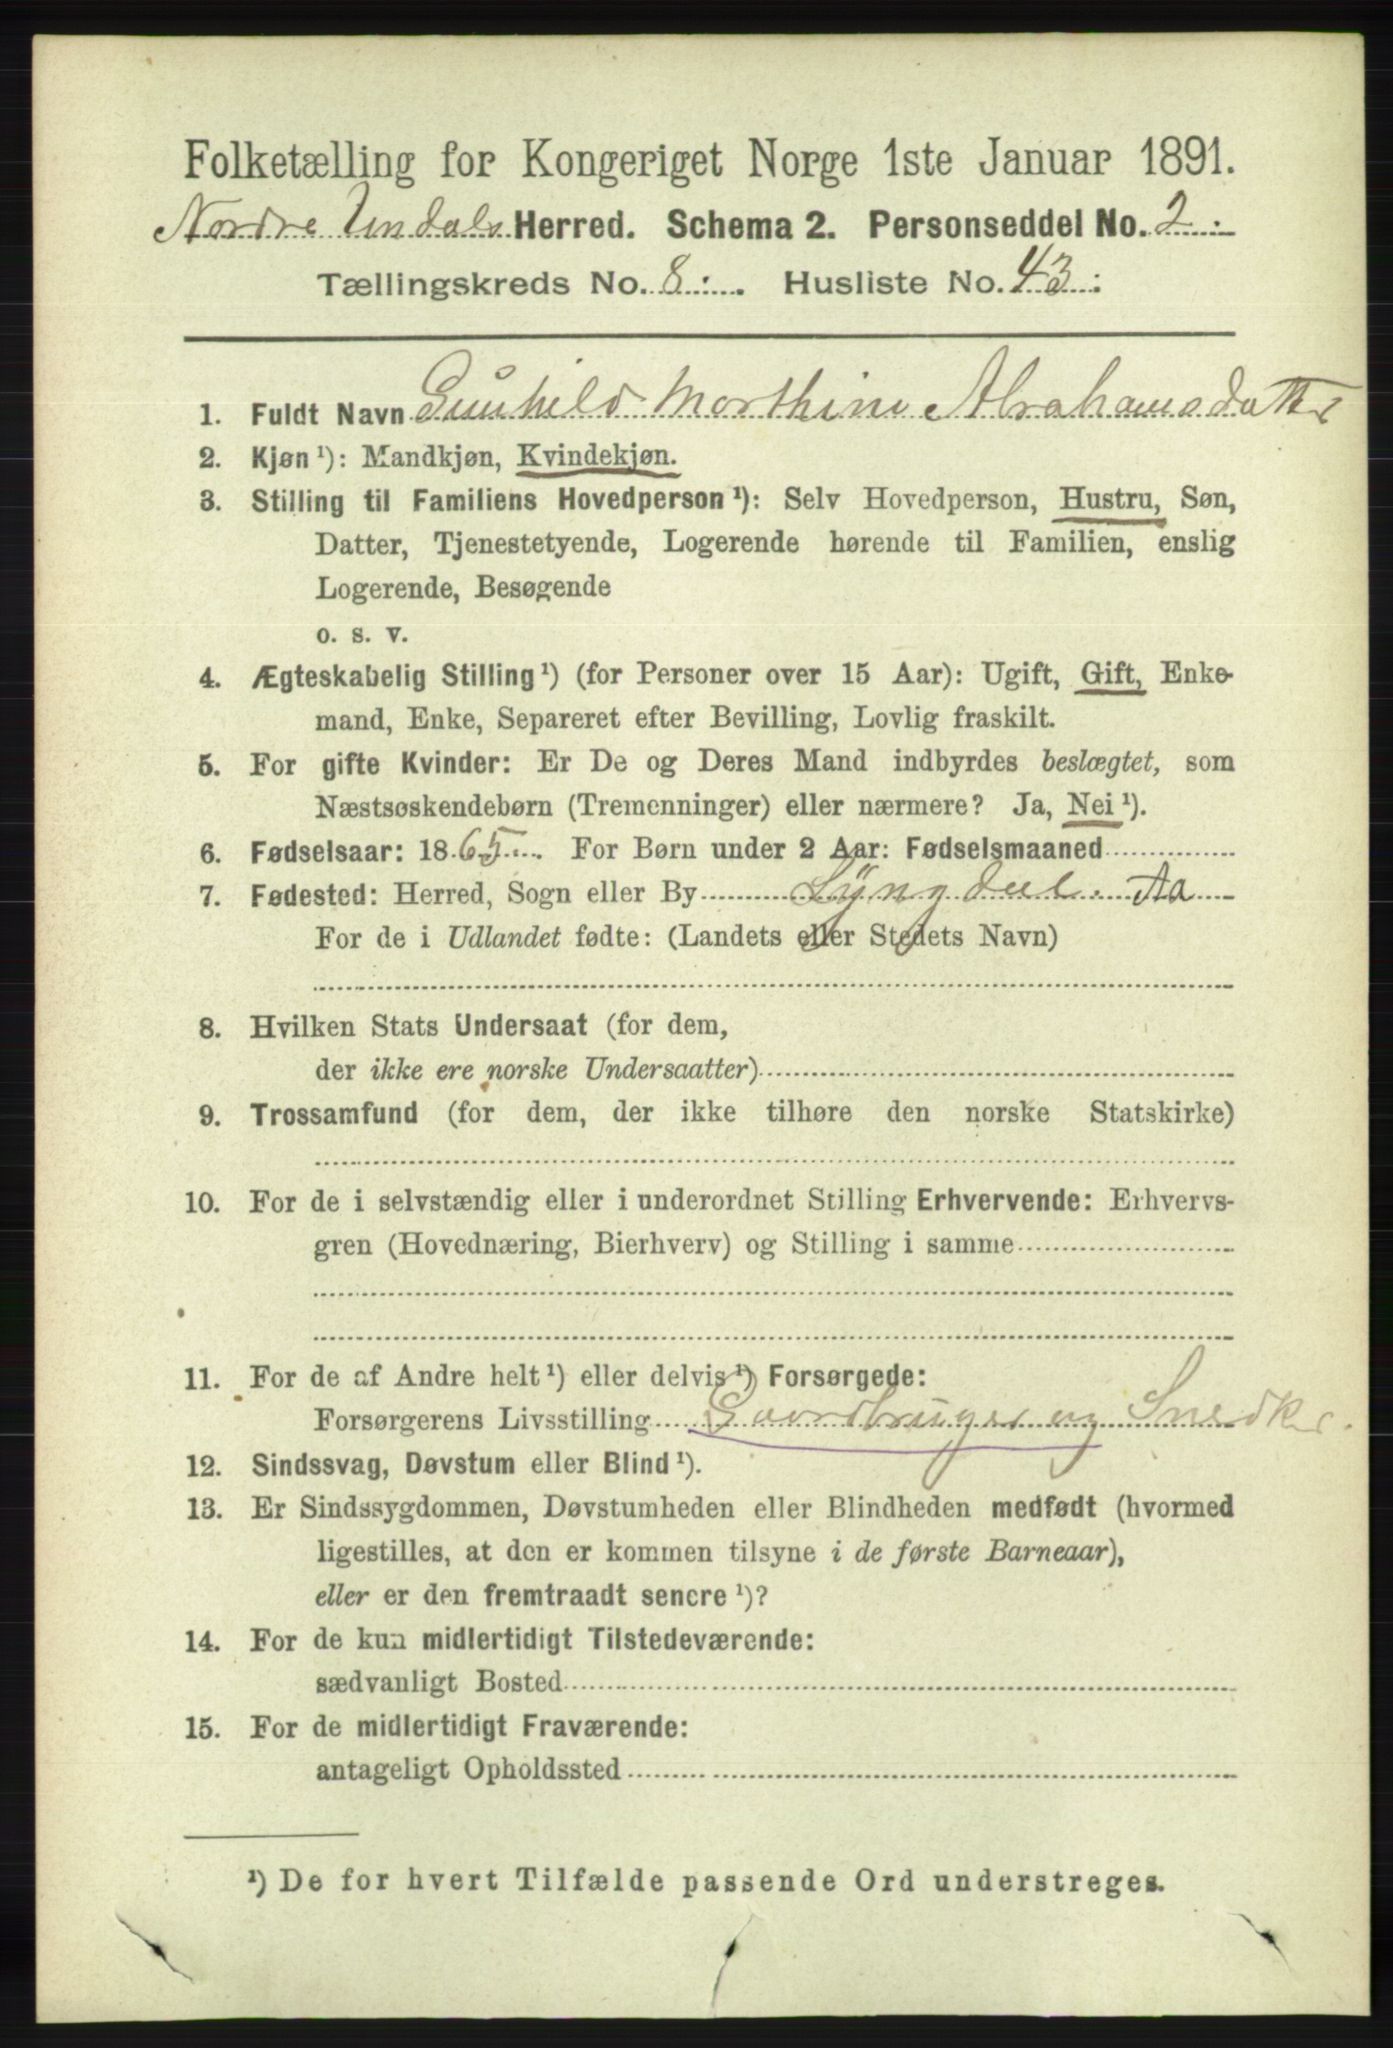 Folketælling for Kongeriget Norge 1ste Januar 1891.
Nordre Undals Herred. Schema 2. Personseddel No. 2.
Tællingskreds No. 8. Husliste No. 43.
1. Fuldt Navn Gunhild Marthine Abrahamsdatter
2. Kjøn ¹): Mandkjøn, Kvindekjøn.
3. Stilling til Familiens Hovedperson ¹): Selv Hovedperson, Hustru, Søn,
Datter, Tjenestetyende, Logerende hørende til Familien, enslig
Logerende, Besøgende
o. s. v.
4. Ægteskabelig Stilling ¹) (for Personer over 15 Aar): Ugift, Gift, Enke-
mand, Enke, Separeret efter Bevilling, Lovlig fraskilt.
5. For gifte Kvinder: Er De og Deres Mand indbyrdes beslægtet, som
Næstsøskendebørn (Tremenninger) eller nærmere? Ja, Nei ¹).
6. Fødselsaar: 1865. For Børn under 2 Aar: Fødselsmaaned
7. Fødested: Herred, Sogn eller By Lyngdal. Aa
For de i Udlandet fødte: (Landets eller Stedets Navn)
8. Hvilken Stats Undersaat (for dem,
der ikke ere norske Undersaatter)
9. Trossamfund (for dem, der ikke tilhøre den norske Statskirke)
10. For de i selvstændig eller i underordnet Stilling Erhvervende: Erhvervs-
gren (Hovednæring, Bierhverv) og Stilling i samme
11. For de af Andre helt ¹) eller delvis ¹) Forsørgede:
Forsørgerens Livsstilling Gaardbruger og Snedker.
12. Sindssvag, Døvstum eller Blind ¹).
13. Er Sindssygdommen, Døvstumheden eller Blindheden medfødt (hvormed
ligestilles, at den er kommen tilsyne i de første Barneaar),
eller er den fremtraadt senere ¹)?
14. For de kun midlertidigt Tilstedeværende:
sædvanligt Bosted
15. For de midlertidigt Fraværende:
antageligt Opholdssted
¹) De for hvert Tilfælde passende Ord understreges.